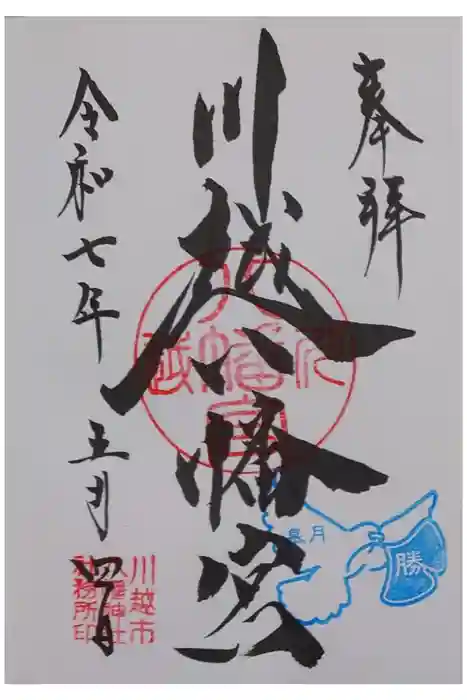 奉拝
川越八幡宮
令和七年 五月 四日
八幡宮
川越
皐月
勝
川越市
八幡神社
社務所印